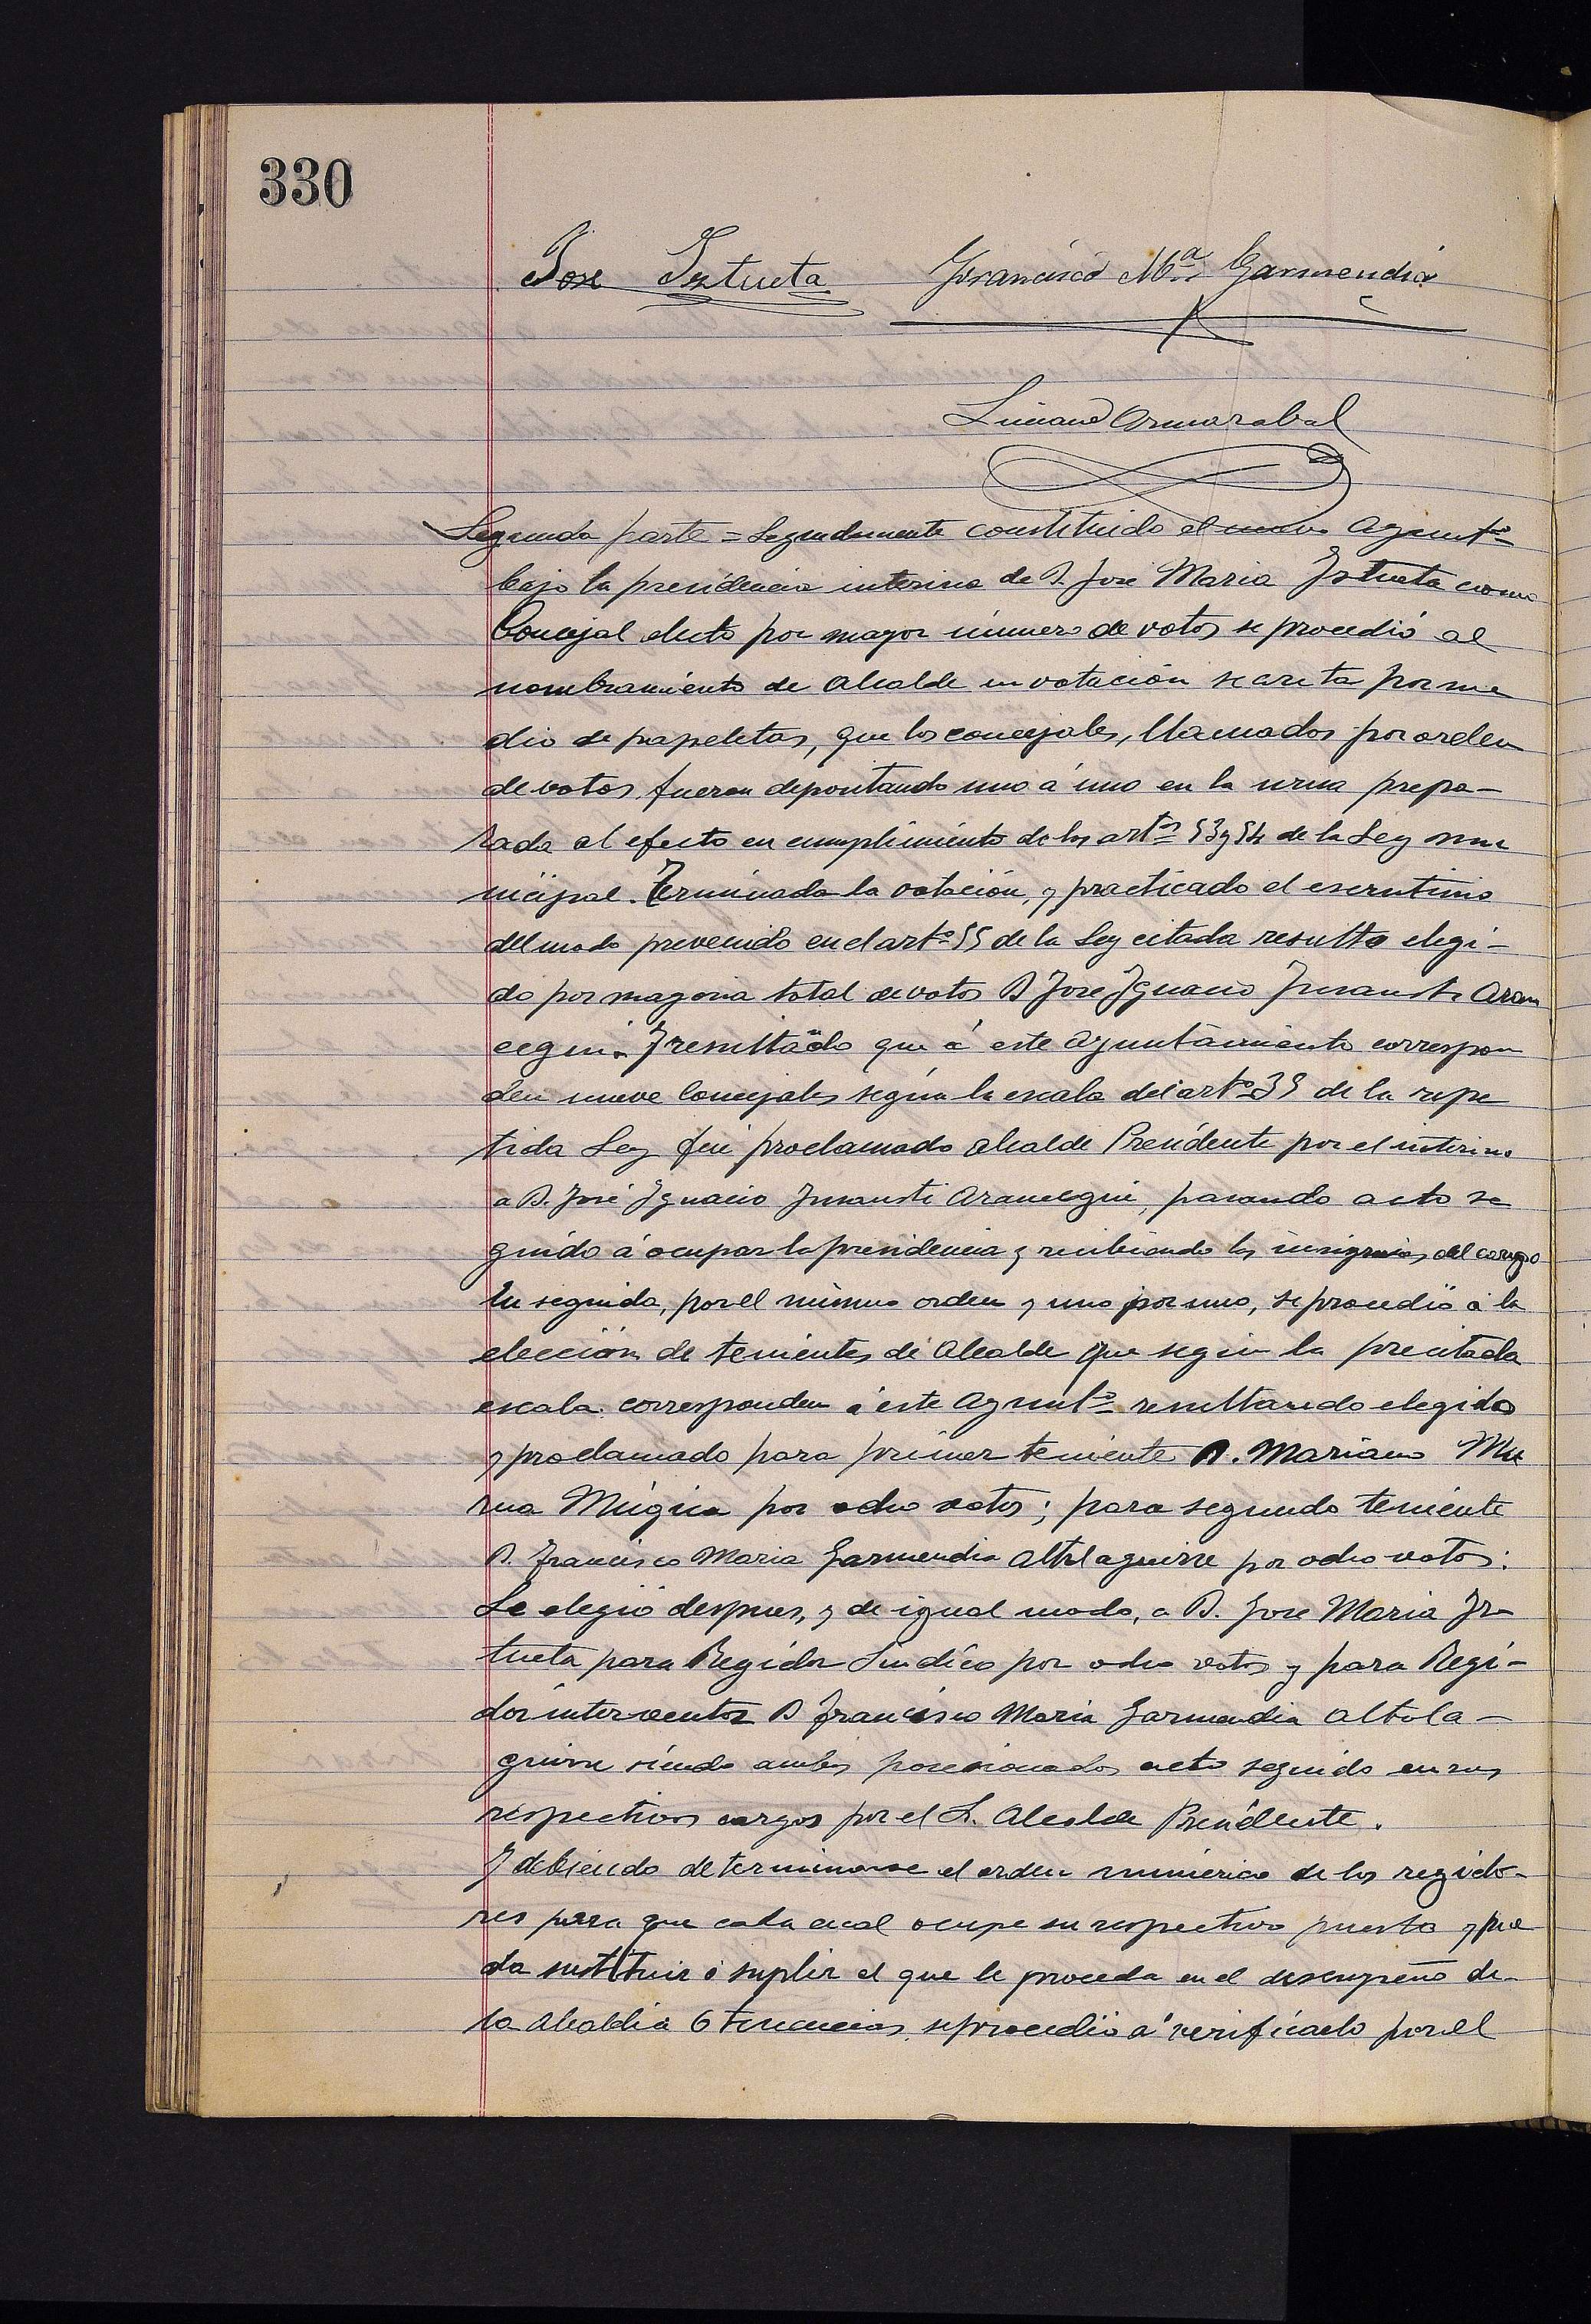 330
Jose Iztueta Francisco Mª Garmendia
Luciano Armarabal
Segunda parte = Seguidamente constituido el nuevo Ayuntº
bajo la presidencia interina de D. Jose Maria Iztueta como
Concejal electo por mayor número de votos se procedió al
nombramiento de Alcalde en votación secreta por me
dio de papeletas, que los concejales, llamados por orden
de votos fueron depositando uno á uno en la urna prepa-
rada al efecto en cumplimiento de los artºs 53 y 54 de la Ley mu
nicipal. Terminada la votación, y practicado el escrutinio
del modo prevenido en el artº 55 de la Ley citada resulto elegi-
do por mayoria total de votos D Jose Ignacio Insausti Aran
cegui. Y resultado que á este Ayuntamiento correspon
den nueve Concejales según la escala del artº 35 de la repe
tida Ley fué proclamado Alcalde Presidente por el interino
a D. José Ignacio Insausti Arancegui, pasando acto se
guido á ocupar la presidencia y recibiendo las insignias del cargo
En seguida, por el mismo orden y uno por uno, se procedió á la
elección de tenientes de Alcalde que según la precitada
escala corresponden á este Ayuntº resultando elegido
y proclamado para primer teniente D. Mariano Mu
rua Múgica por ocho votos; para segundo teniente
D. Francisco Maria Garmendia Altolaguirre por ocho votos.
Se elegió despues, y de igual modo, a D. Jose Maria Iz-
tueta para Regidor Síndico por ocho votos y para Regi-
dor interventor D Francisco Maria Garmendia Altola-
guirre siendo ambos posesionados acto seguido en sus
respectivos cargos por el S. Alcalde Presidente.
Y debiendo determinarse el orden numérico de los regido-
res para que cada cual ocupe su respectivo puesto y pue
da sustituir ó suplir al que le proceda en el desempeño de
la Alcaldia ó Tenencias, se procedió á verificarlo por el